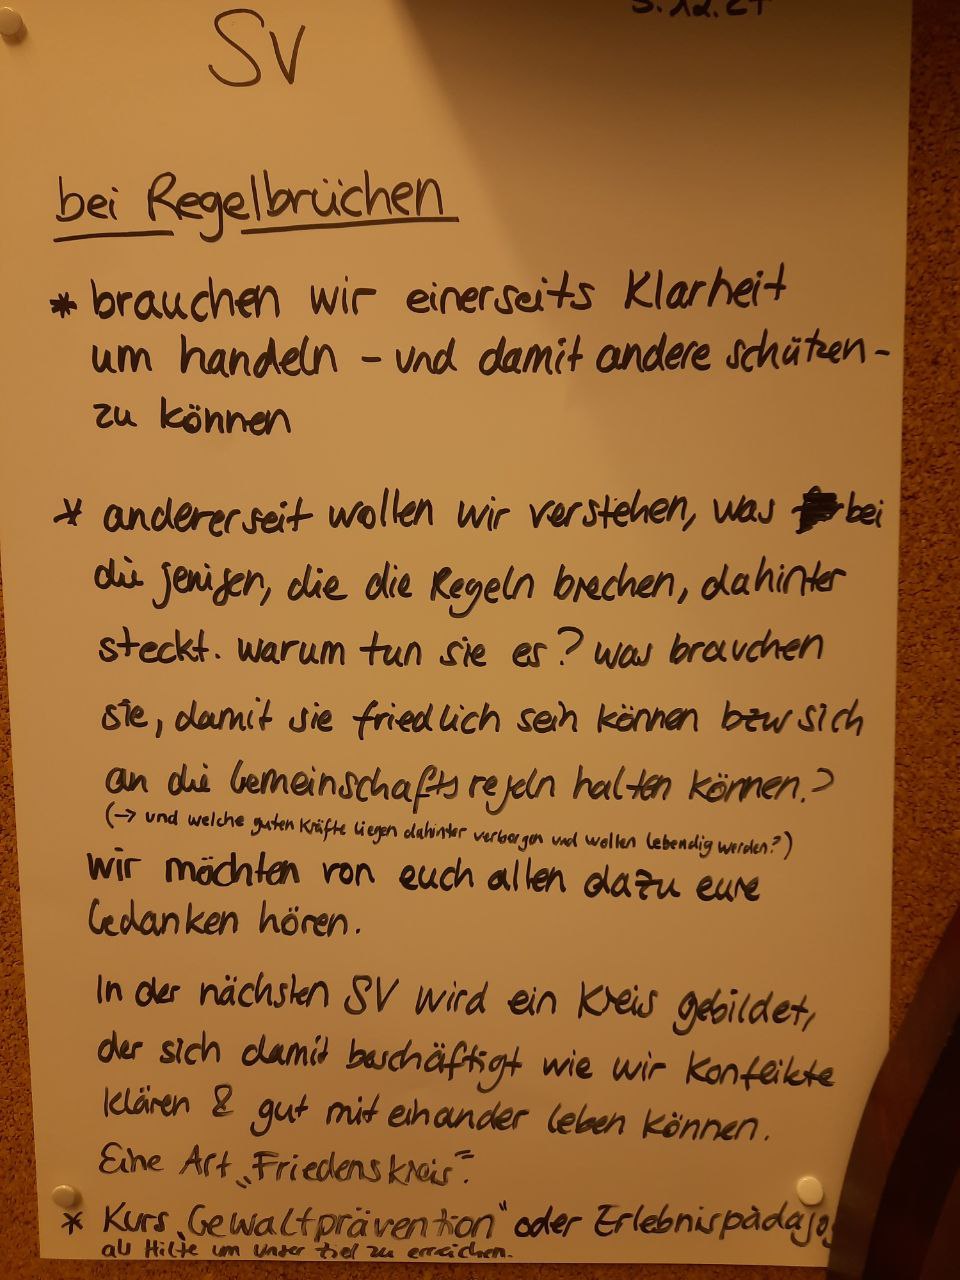 SV
bei Regelbrüchen
* brauchen wir einerseits Klarheit
um handeln - und damit andere schützen -
zu können
* andererseit wollen wir verstehen, was bei
die jenigen, die die Regeln brechen, dahinter
steckt. warum tun sie es? was brauchen
sie, damit sie friedlich sein können bzw sich
an die Gemeinschaftsregeln halten können.?
(→ und welche guten Kräfte liegen dahinter verborgen und wollen lebendig werden?)
wir möchten von euch allen dazu eure
Gedanken hören.
In der nächsten SV wird ein Kreis gebildet,
der sich damit beschäftigt wie wir Konflikte
klären & gut mit einander leben können.
Eine Art „Friedenskreis“.
* Kurs „Gewaltprävention“ oder Erlebnispädago
als Hilfe um unser Ziel zu erreichen.